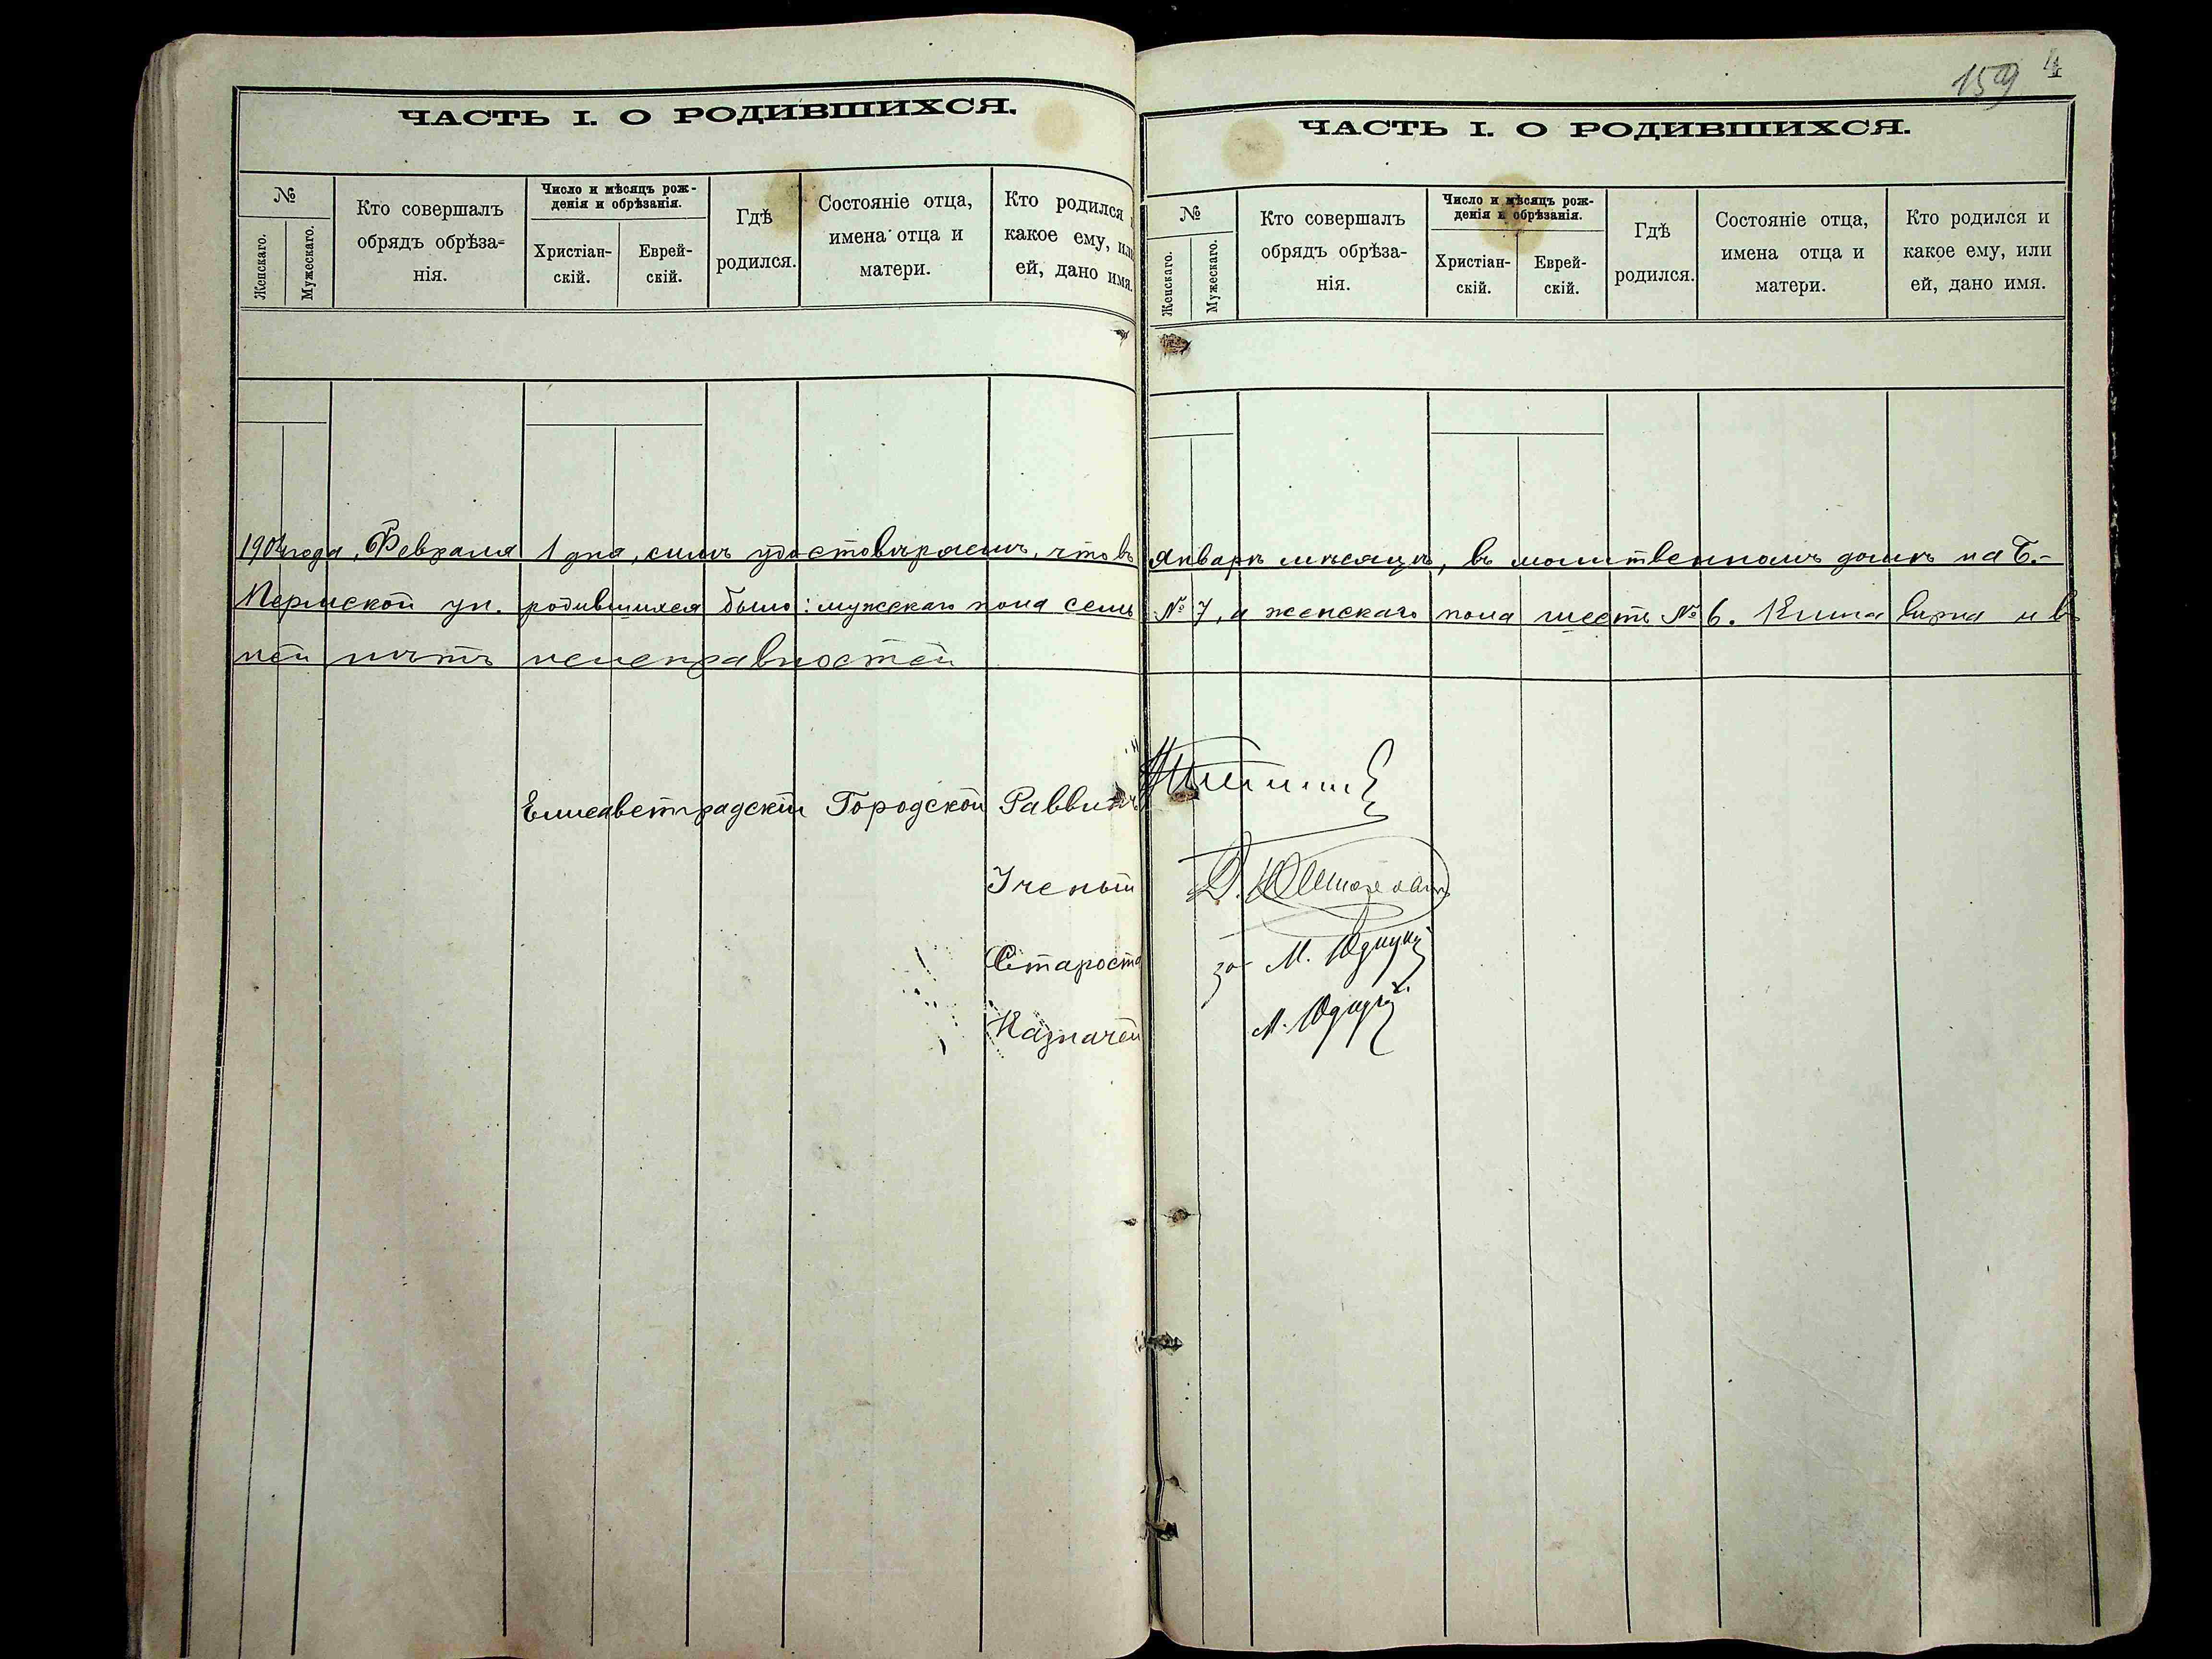 159 4
ЧАСТЬ I. О РОДИВШИХСЯ.
№
Женскаго.
Мужескаго.
Кто совершалъ
обрядъ обрѣза-
нія.
Число и мѣсяцъ рож-
денія и обрѣзанія.
Христіан-
скій.
Еврей-
скій.
Гдѣ
родился.
Состояніе отца,
имена отца и
матери.
Кто родился и
какое ему, или
ей, дано имя.
ЧАСТЬ I. О РОДИВШИХСЯ.
№
Женскаго.
Мужескаго.
Кто совершалъ
обрядъ обрѣза-
нія.
Число и мѣсяцъ рож-
денія и обрѣзанія.
Христіан-
скій.
Еврей-
скій.
Гдѣ
родился.
Состояніе отца,
имена отца и
матери.
Кто родился и
какое ему, или
ей, дано имя.
1904 года, Февраля 1 дня, симъ удостовѣряемъ, что въ Январѣ мѣсяцѣ, въ молитвенномъ домѣ на Б.-
Пермской ул. родившихся было: мужскаго пола семь № 7, а женскаго пола шесть № 6. Книга вѣрна и въ
ней нѣтъ неисправностей
Елисаветградскій Городской Раввинъ
Ученый
Староста за М. Юдицкій
Казначей М. Юдицкій